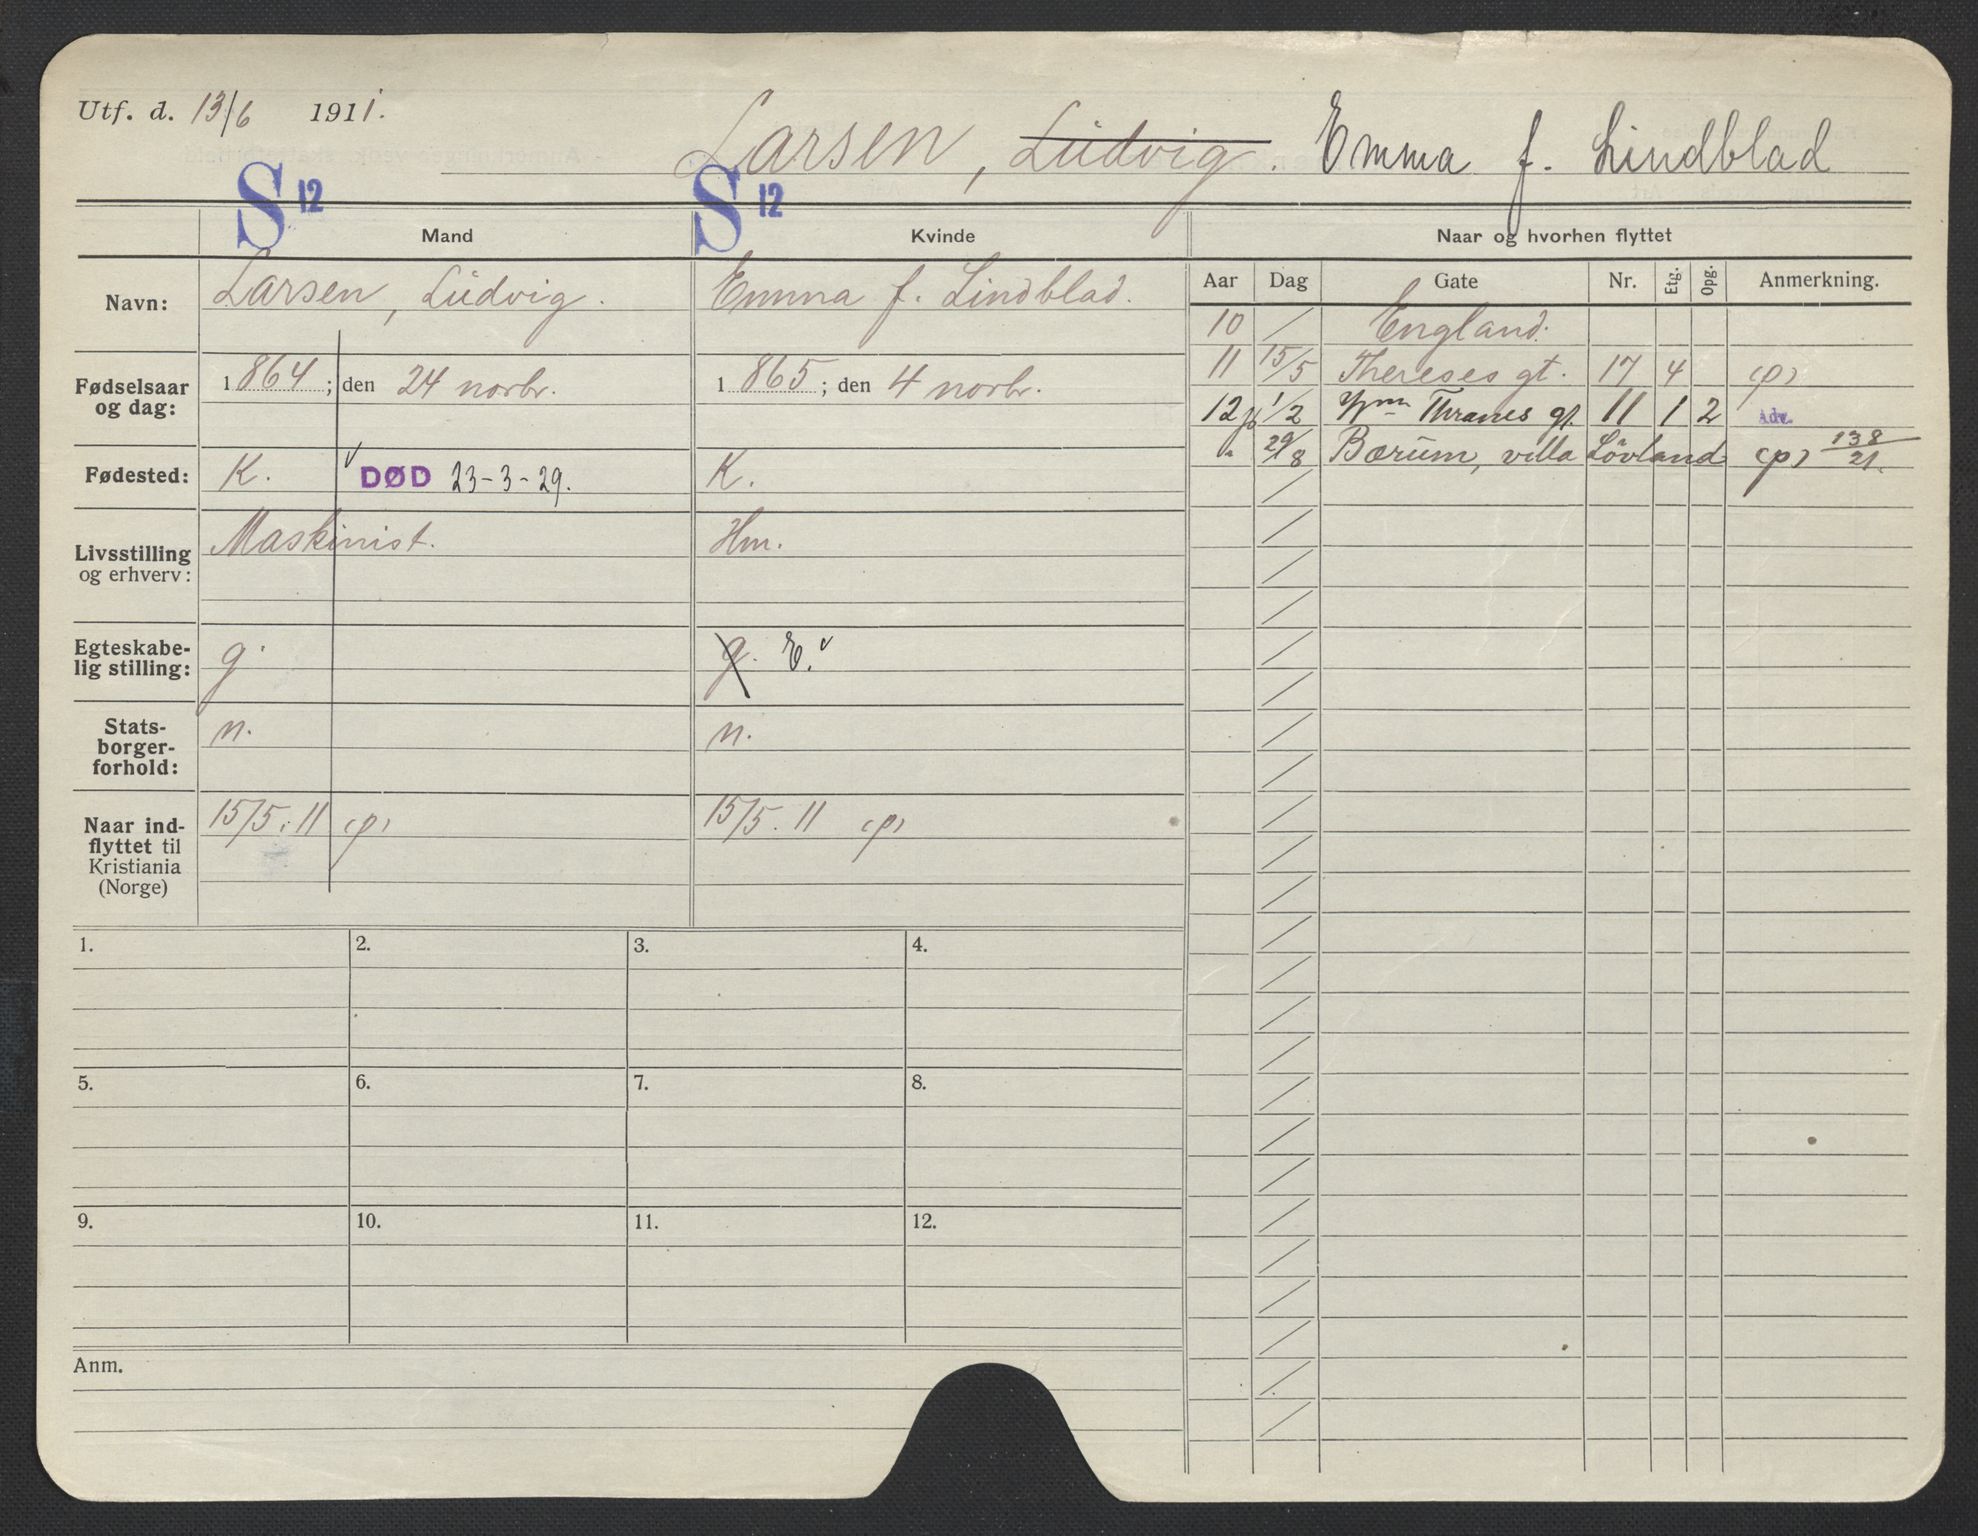 Utf. d. 13/6 1911.
Larsen, Ludvig. Emma f. Lindblad
S 12 S 12
Mand Kvinde Naar og hvorhen flyttet
Navn: Larsen, Ludvig. Emma f. Lindblad.
Aar Dag Gate Nr. Etg. Opg. Anmerkning.
10 / England.
11 15/5 Thereses gt. 17 4 (p)
12 1/2 Wm Thranes gt. 11 1 2 Adv.
" 29/8 Bærum, villa Lövland (p) 138/21.
Fødselsaar og dag: 1864; den 24 novbr. 1865; den 4 novbr.
Fødested: K. DØD 23-3-29. K.
Livsstilling og erhverv: Maskinist. Hm.
Egteskabe-
lig stilling: g. g. E.
Stats-
borger-
forhold: n. n.
Naar ind-
flyttet til
Kristiania
(Norge) 15/5. 11 (p) 15/5. 11 (p)
1. 2. 3. 4.
5. 6. 7. 8.
9. 10. 11. 12.
Anm.